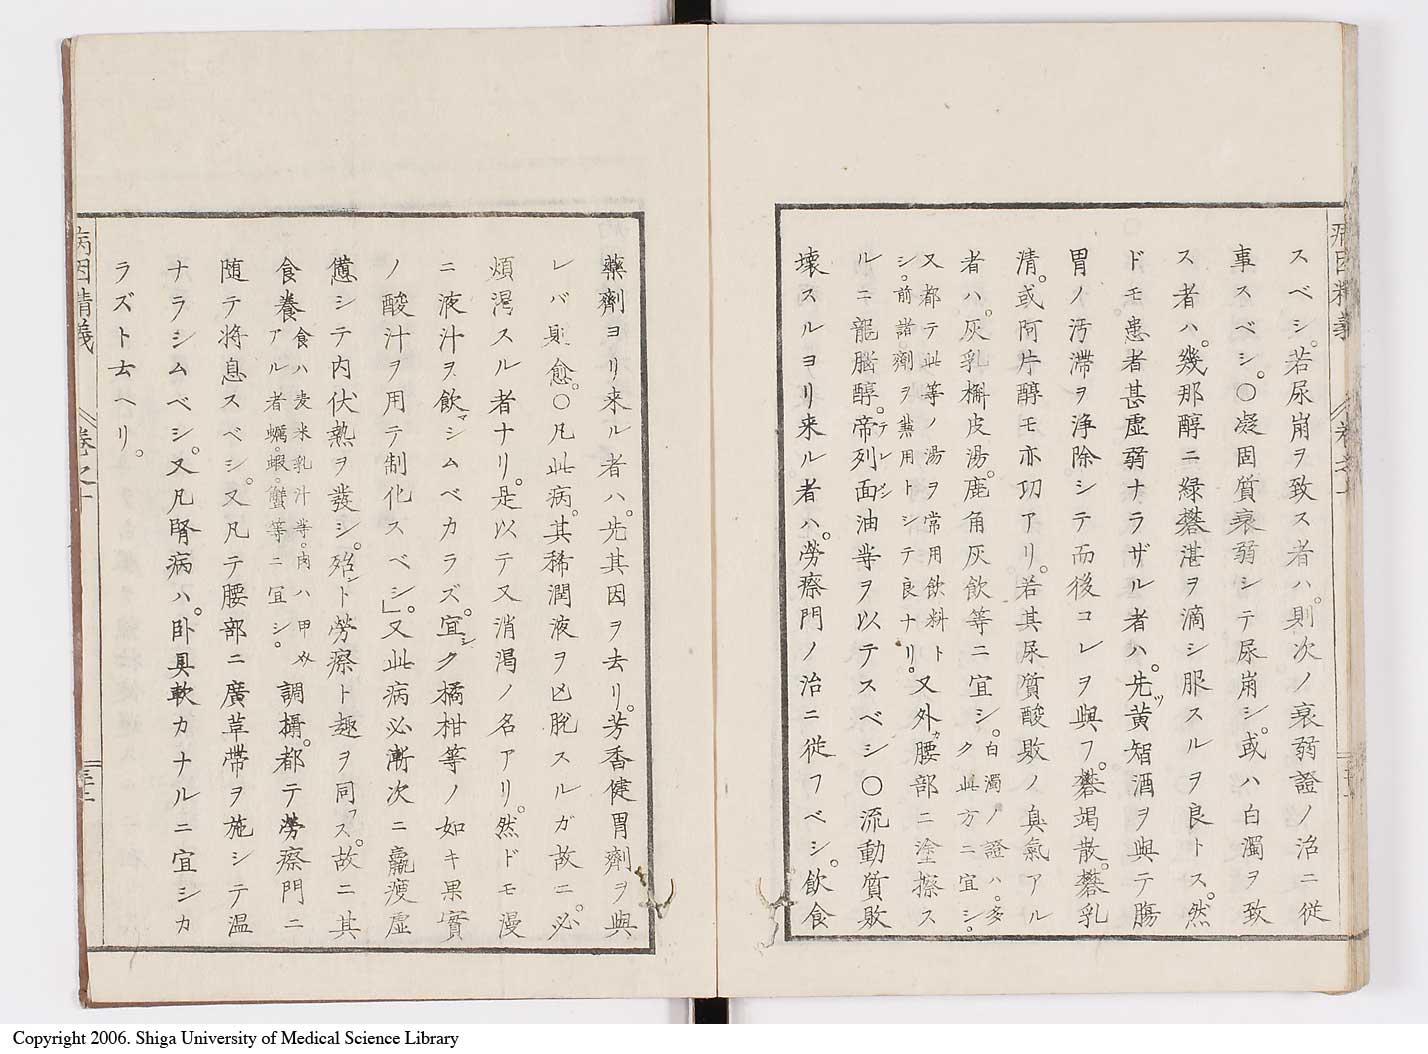 病因精義 卷之十 三十一
スベシ。若尿崩ヲ致ス者ハ。則次ノ衰弱證ノ治ニ従
事スベシ。〇凝固質衰弱シテ尿崩シ。或ハ白濁ヲ致
ス者ハ。幾那醇ニ緑礬湛ヲ滴シ服スルヲ良トス。然
ドモ患者甚虚弱ナラザル者ハ。先ツ黄智酒ヲ與テ膓
胃ノ汚滞ヲ浄除シテ而後コレヲ與フ。礬竭散。礬乳
清。或阿片醇モ亦功アリ。若其尿質酸敗ノ臭氣アル
者ハ。灰乳槲皮湯。鹿角灰飲等ニ宜シ。白濁ノ證ハ。多ク此方ニ宜シ。
又都テ此等ノ湯ヲ常用飲料トシ。前諸劑ヲ兼用トシテ良ナリ。又外カ腰部ニ塗擦ス
ルニ龍脳醇。帝列面油テレメン等ヲ以テスベシ〇流動質敗
壊スルヨリ来ル者ハ。勞瘵門ノ治ニ従フベシ。飲食
藥劑ヨリ来ル者ハ。先其因ヲ去リ。芳香健胃劑ヲ與
レバ則愈。〇凡此病。其稀潤液ヲ凶脱スルガ故ニ。必
煩渇スル者ナリ。是以テ又消渇ノ名アリ。然ドモ漫
ニ液汁ヲ飲マシムベカラズ。宜シク橘柑等ノ如キ果實
ノ酸汁ヲ用テ制化スベシ」。又此病必漸次ニ羸痩虚
憊シテ内伏熱ヲ發シ。殆ント勞瘵ト趣ヲ同フス。故ニ其
食養食ハ麦米乳汁等。肉ハ甲アル者蠣。蝦。蟹等ニ宜シ。調攝。都テ勞瘵門ニ
随テ将息スベシ。又凡テ腰部ニ廣草帯ヲ施シテ温
ナラシムベシ。又凡腎病ハ。臥具軟カナルニ宜シカ
ラズト云ヘリ。
病因精義 卷之十 三十二
Copyright 2006. Shiga University of Medical Science Library